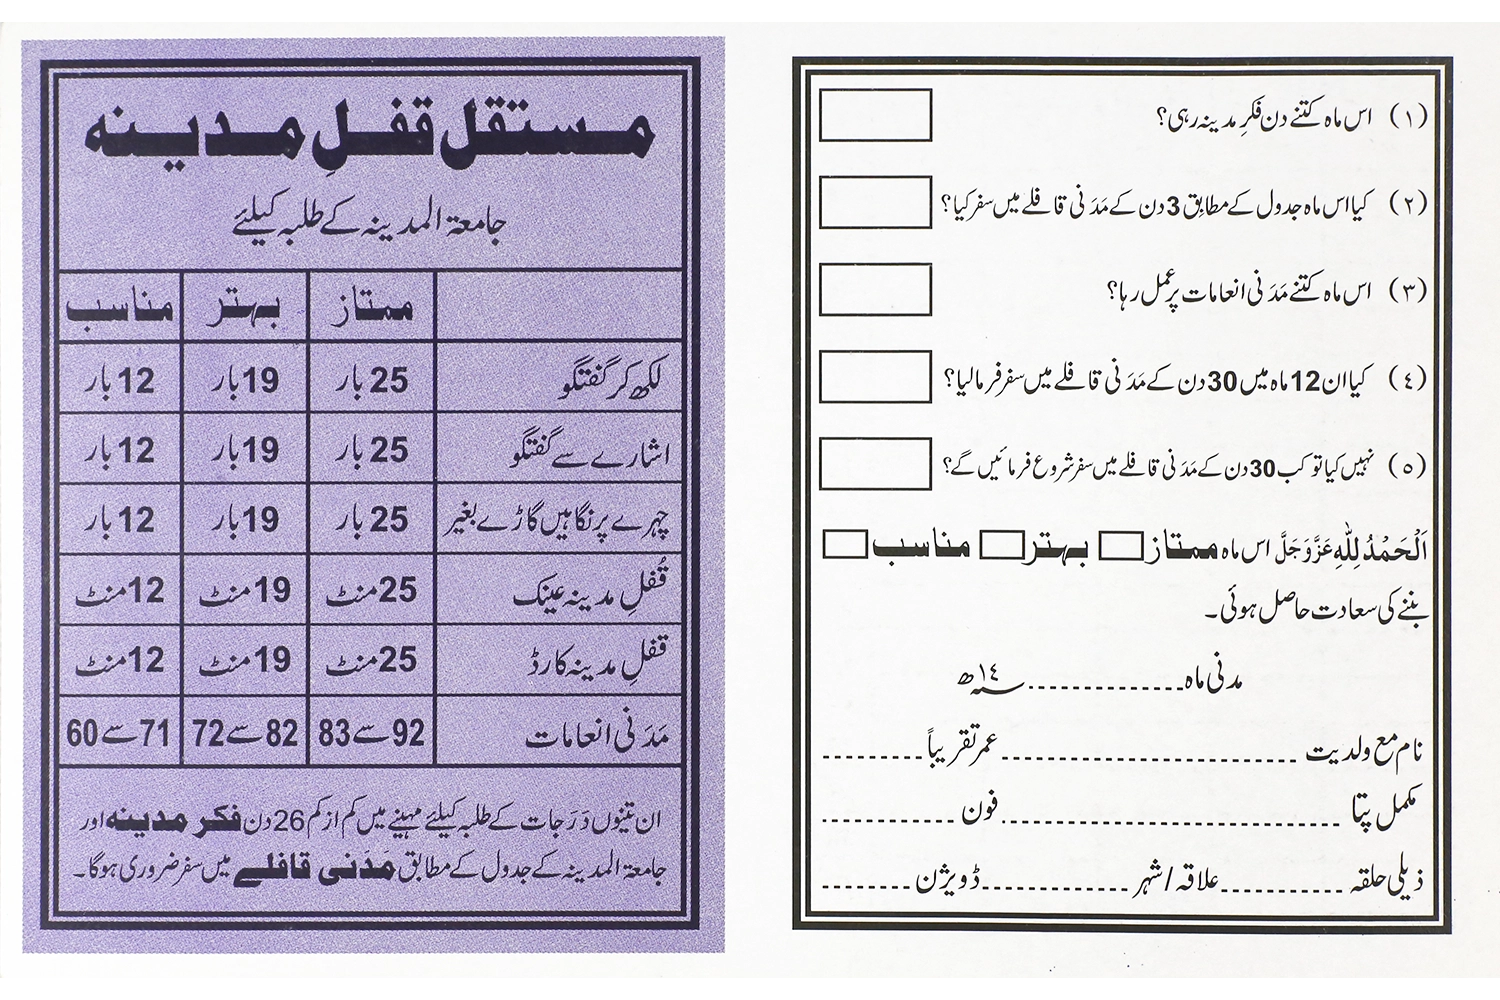 مستقل قفلِ مدینہ
جامعۃ المدینہ کے طلبہ کیلئے
ممتاز بہتر مناسب
لکھ کر گفتگو 25 بار 19 بار 12 بار
اشارے سے گفتگو 25 بار 19 بار 12 بار
چہرے پر نگاہیں گاڑے بغیر 25 بار 19 بار 12 بار
قُفلِ مدینہ عینک 25 منٹ 19 منٹ 12 منٹ
قفلِ مدینہ کارڈ 25 منٹ 19 منٹ 12 منٹ
مَدَنی انعامات 92 سے 83 82 سے 72 71 سے 60
ان تینوں دَرَجات کے طلبہ کیلئے مہینے میں کم از کم 26 دن فکرِ مدینہ اور
جامعۃ المدینہ کے جدول کے مطابق مَدَنی قافلے میں سفر ضروری ہوگا۔
(۱) اس ماہ کتنے دن فکرِ مدینہ رہی؟
(۲) کیا اس ماہ جدول کے مطابق 3 دن کے مَدَنی قافلے میں سفر کیا؟
(۳) اس ماہ کتنے مَدَنی انعامات پر عمل رہا؟
(٤) کیا ان 12 ماہ میں 30 دن کے مَدَنی قافلے میں سفر فرما لیا؟
(٥) نہیں کیا تو کب 30 دن کے مَدَنی قافلے میں سفر شروع فرمائیں گے؟
اَلْحَمْدُ لِلّٰہِ عَزَّوَجَلَّ اس ماہ ممتاز بہتر مناسب
بننے کی سعادت حاصل ہوئی۔
مدنی ماہ ............... ۱٤ھ
نام مع ولدیت ............... عمر تقریباً ...............
مکمل پتا ............... فون ...............
ذیلی حلقہ ............... علاقہ/شہر ............... ڈویژن ...............